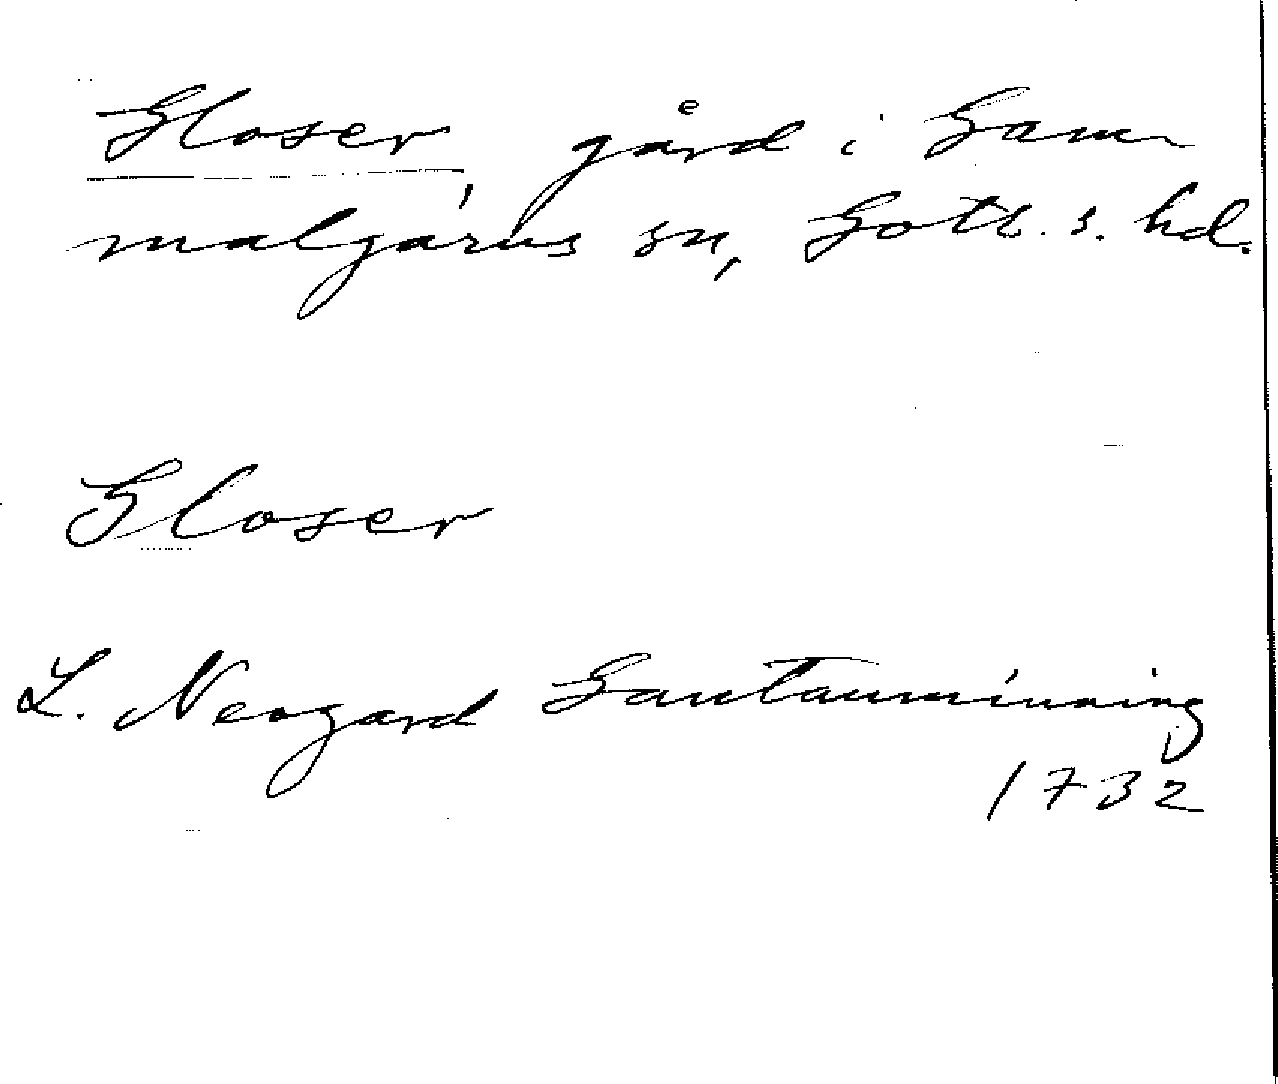 Gloser, gård i Gam
malgarns sn, Gotl. s. hd.
Gloser
L. Neogard Gautauminning
1732